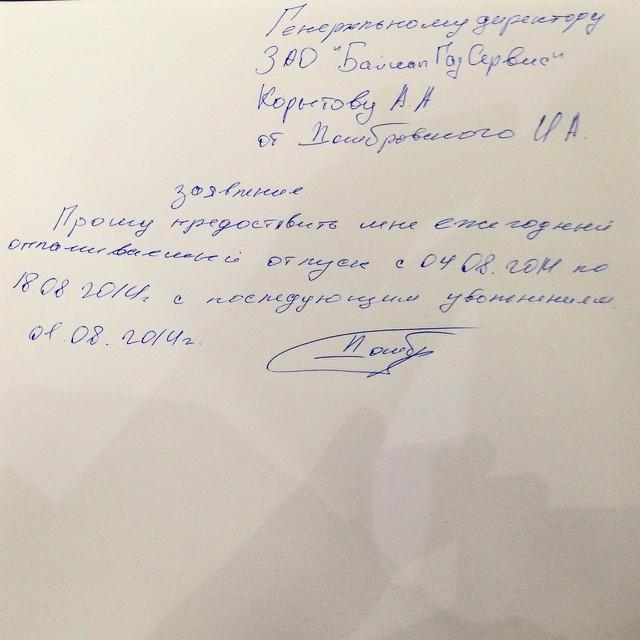 Генеральному директору
ЗАО "БайкалГазСервис"
Корытову А.А
от И.А.
заявление
Прошу предоставить мне ежегодный
оплачиваемый отпуск с 04.08.2014 по
18.08 2014г с последующим увольнением.
01.08. 2014г.